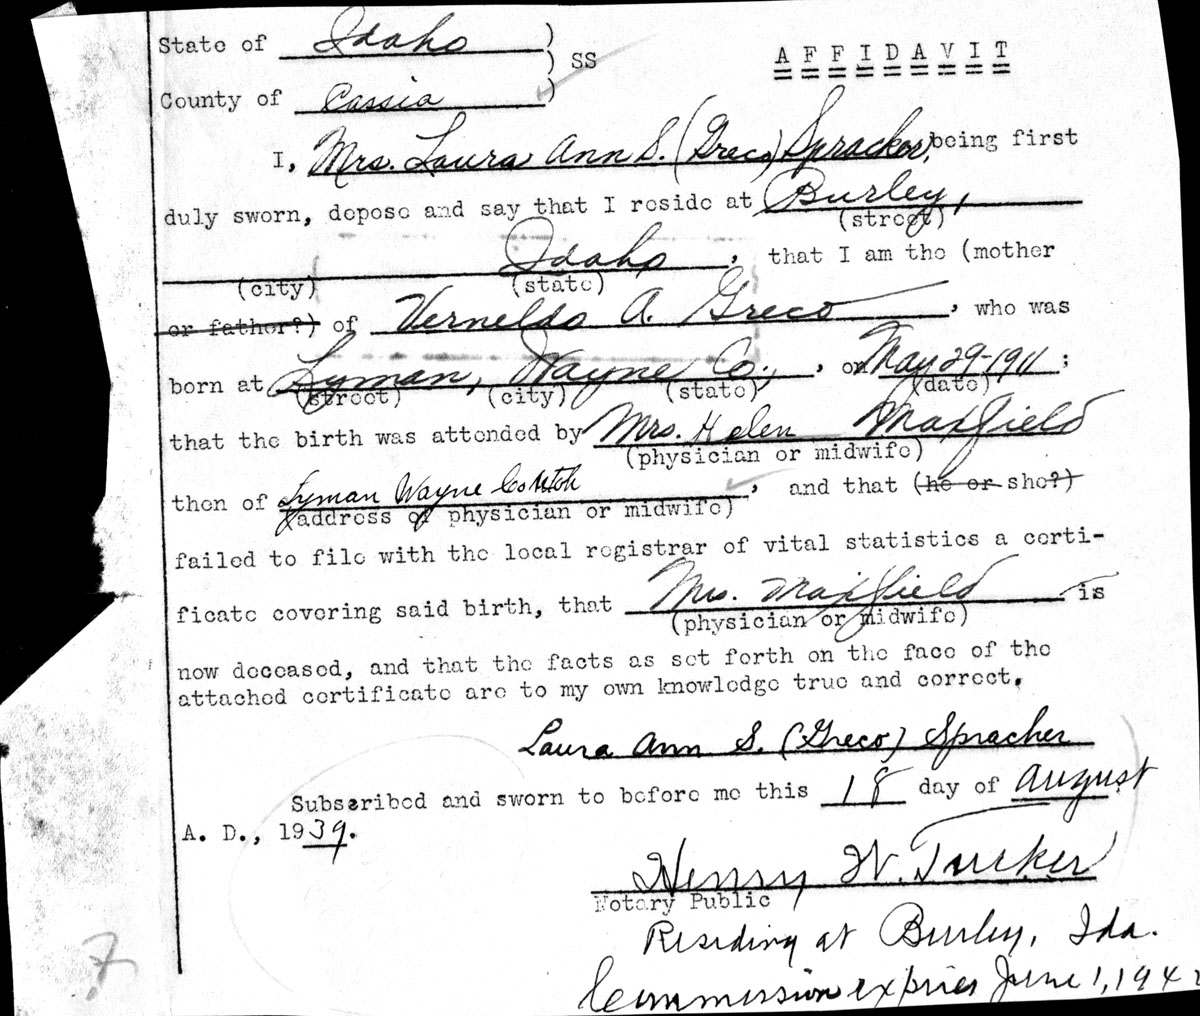 State of Idaho )
) SS
AFFIDAVIT
County of Cassia )
I, Mrs. Laura Ann S. (Greco) Spracher, being first
duly sworn, depose and say that I reside at Burley,
(street)
Idaho, that I am the (mother
(city) (state)
or father?) of Verneldo A. Greco, who was
born at Lyman, Wayne Co., on May 29-1911;
(street) (city) (state) (date)
that the birth was attended by Mrs. Helen Maxfield
(physician or midwife)
then of Lyman Wayne Co Utah, and that (he or she?)
(address of physician or midwife)
failed to file with the local registrar of vital statistics a certi-
ficate covering said birth, that Mrs. Maxfield is
(physician or midwife)
now deceased, and that the facts as set forth on the face of the
attached certificate are to my own knowledge true and correct.
Laura Ann S. (Greco) Spracher
Subscribed and sworn to before me this 18 day of August
A. D., 1939.
Henry W. Tucker
Notary Public
Residing at Burley, Ida.
Commission expires June 1, 1942
7